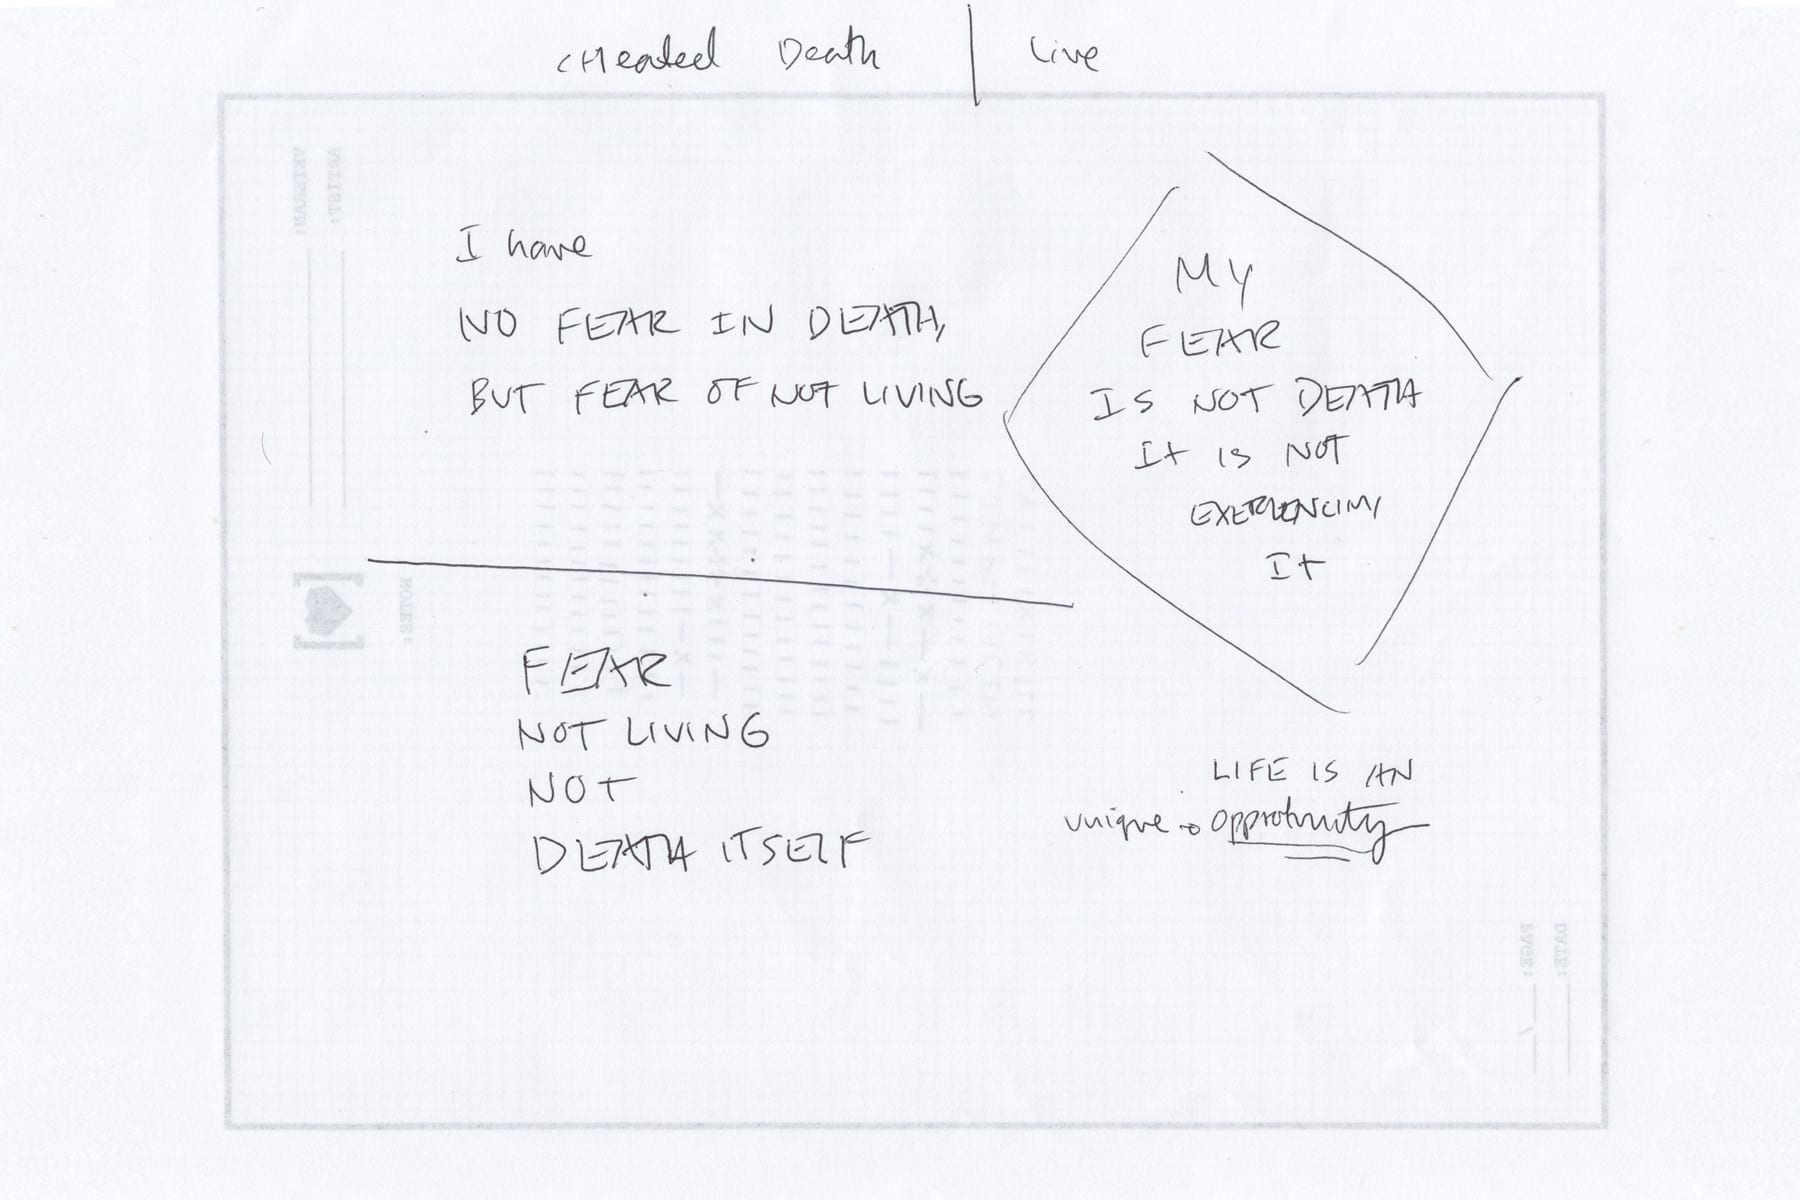 cHeated Death | Live
I have
NO FEAR IN DEATH,
BUT FEAR OF NOT LIVING
MY
FEAR
IS NOT DEATH
It is NOT
EXERIENCING
It
FEAR
NOT LIVING
NOT
DEATH ITSELF
LIFE IS AN
unique opprotunity
ARTIST:
VETERAN:
NOTES:
DATE:
PAGE: